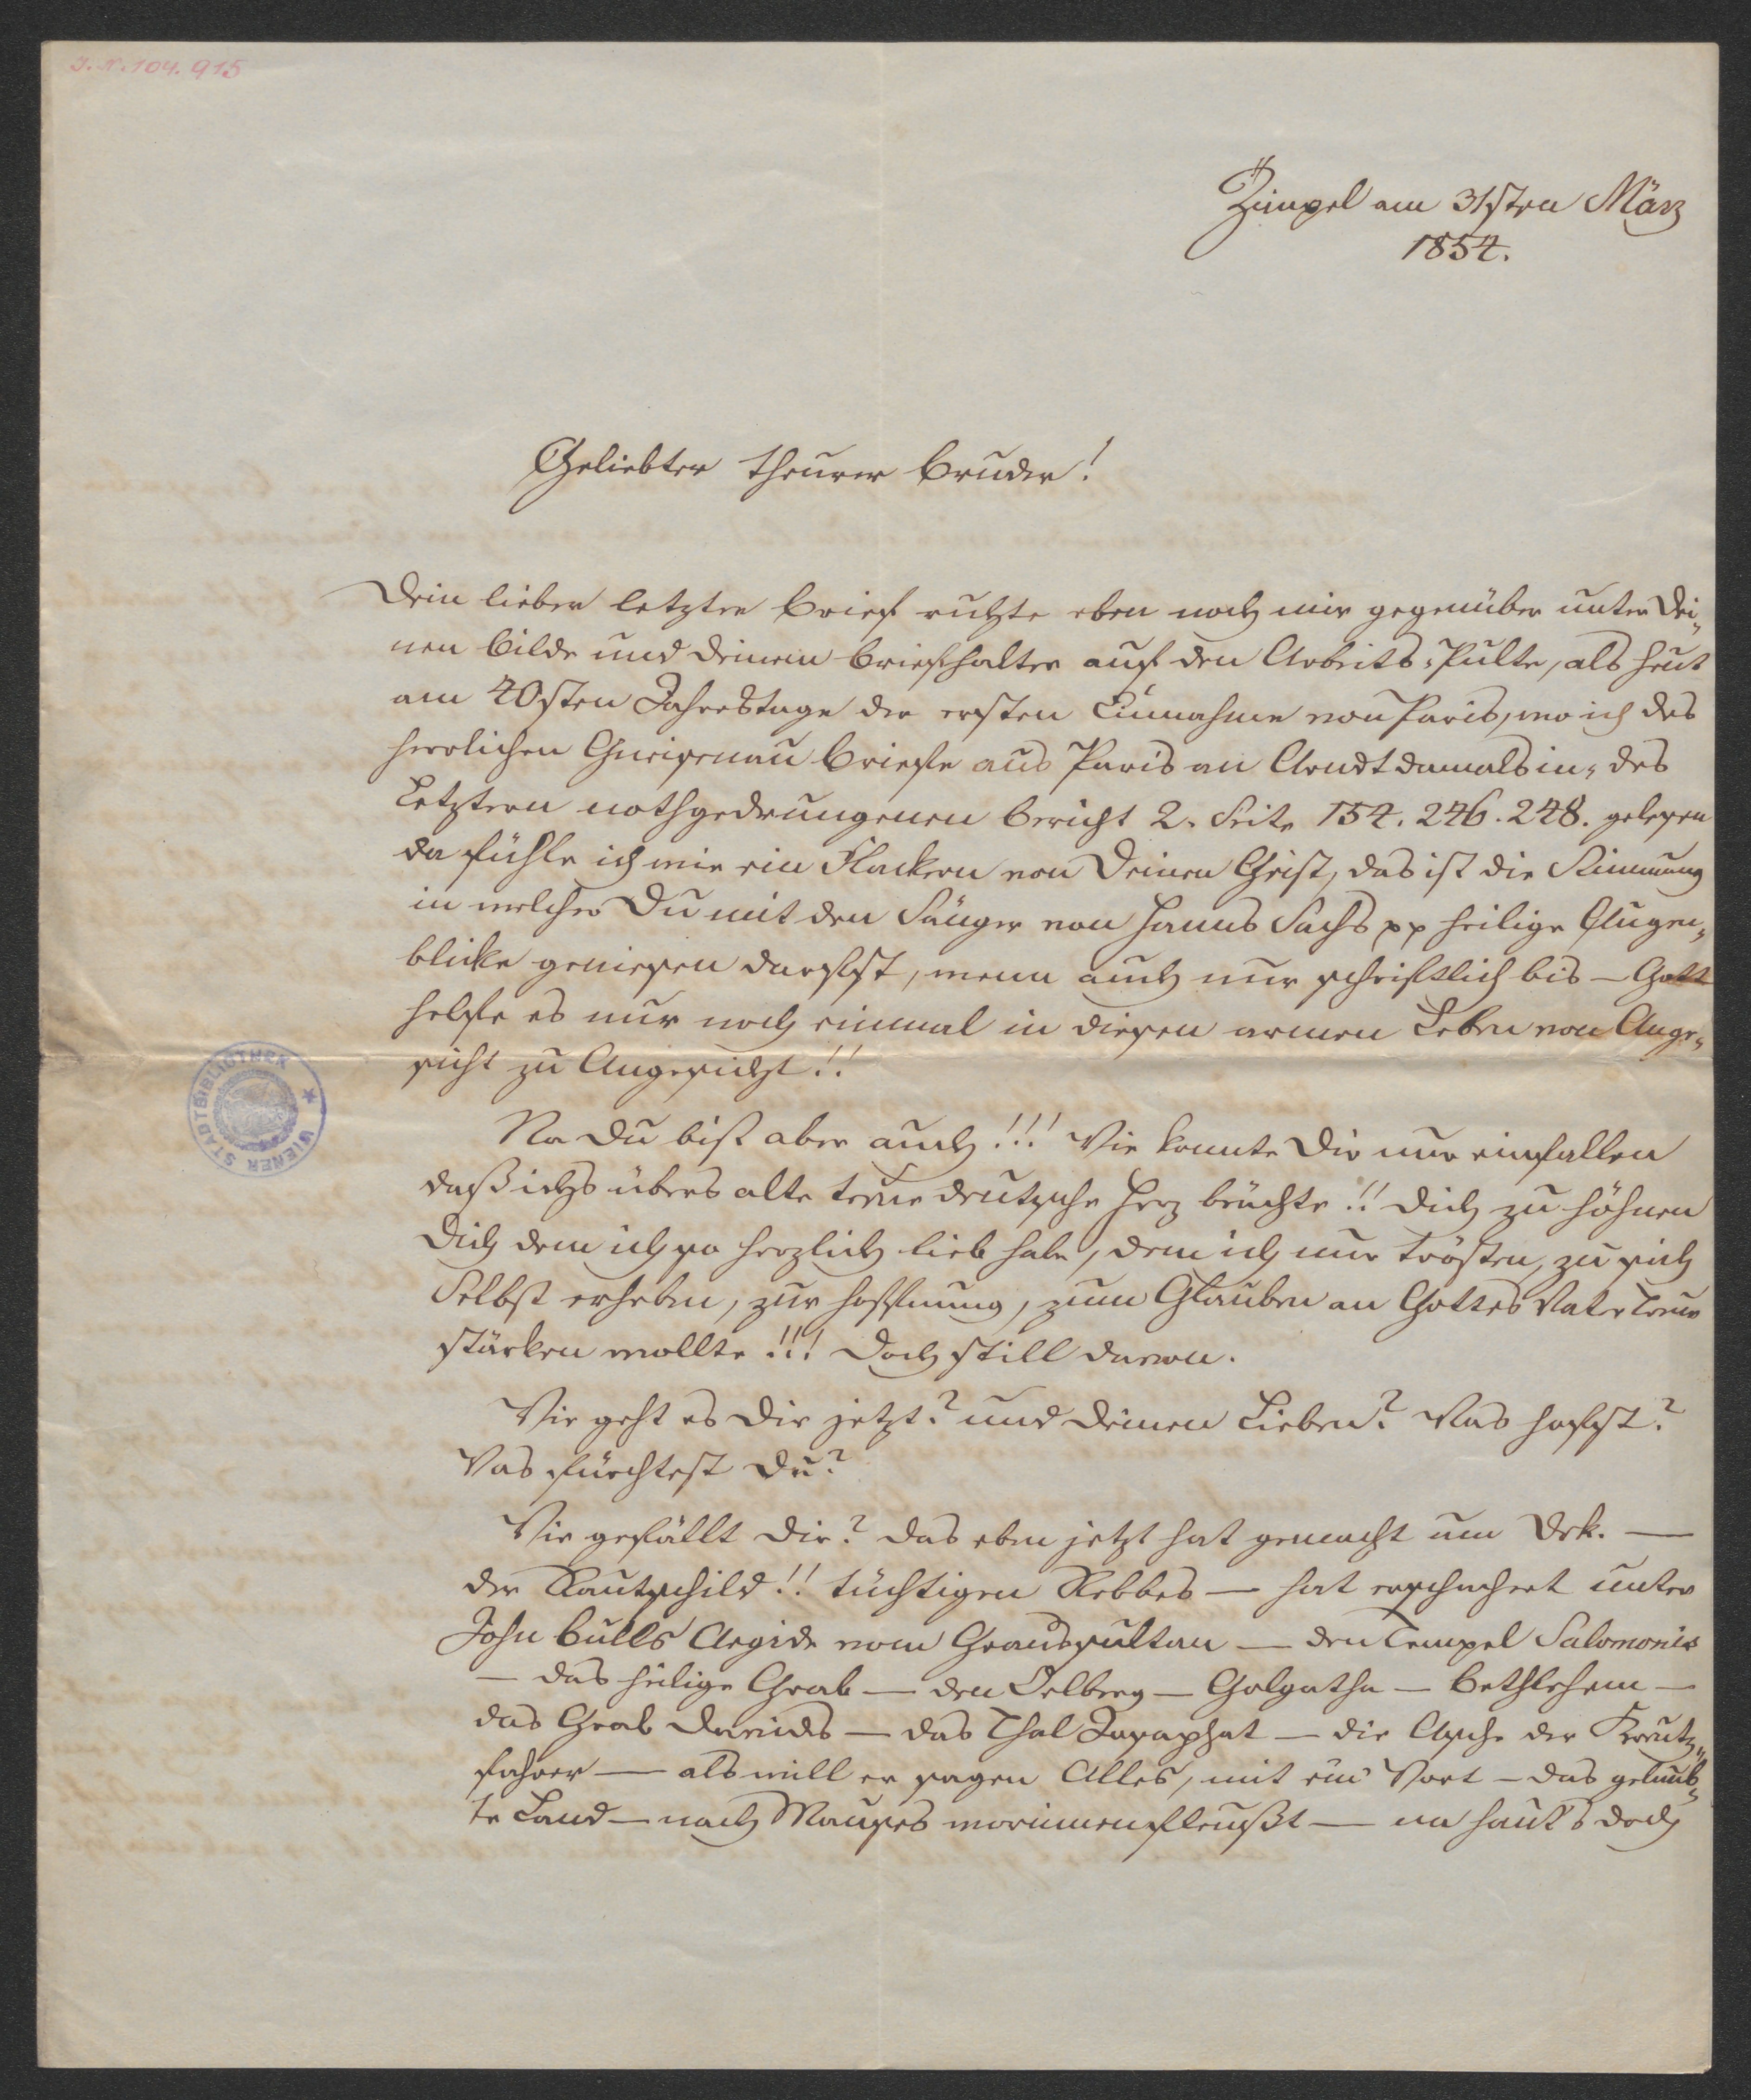 J. N. 104.915
Zimpel am 31sten März
1854.
Geliebter theurer Bruder!
Dein lieber letzter Brief ruhte eben noch mir gegenüber unter Dei„
nen Bilde und Deinem Briefhalter auf den Arbeits-Pulte, als heut
am 40sten Jahrestage der ersten Einnahme von Paris, wo ich des
herrlichen Gneisenau Briefe aus Paris an Arndt damals in, des
Letztern nothgedrungenen Bericht 2. Seite 154. 246. 248. gelesen
da fühle ich wie ein Flackern von Deinen Geist, das ist die Stimmung
in welcher Du mit den Sänger von Hanns Sachs pp heilige Augen„
blicke geniesen darfst, wenn auch nur schriftlich bis – Gott
helfe es nur noch einmal in diesen armen Leben von Ange„
sicht zu Angesicht!!
Na Du bist aber auch!!! Wie konnte Dir nur einfallen
daß ichs übers alte treue deutsche Herz brächte!! Dich zu höhnen
Dich dem ich so herzlich lieb habe, dem ich nur trösten, zu sich
Selbst erheben, zur Hoffnung, zum Glauben an Gottes Vater Treue
stärken wollte!!! Doch still davon.
Wie geht es Dir jetzt? und Deinen Lieben? Was hoffst?
Was fürchtest Du?
Wie gefällt Dir? das eben jetzt hat gemacht um Drk. —
der Rautschild!! tüchtigen Rebbes — hat erschachert unter
John Bulls Aegide vom Grandsultan — den Tempel Salomonis
— das heilige Grab — den Oelberg — Golgatha — Bethlehem —
das Grab Davids — das Thal Josaphat — die Asche der Kreutz„
fahrer — als will er sagen Alles, mit ein Wort – das gelaub„
te Land — nach Mauses — na hauts doch
WIENER STADTBIBLIOTHEK